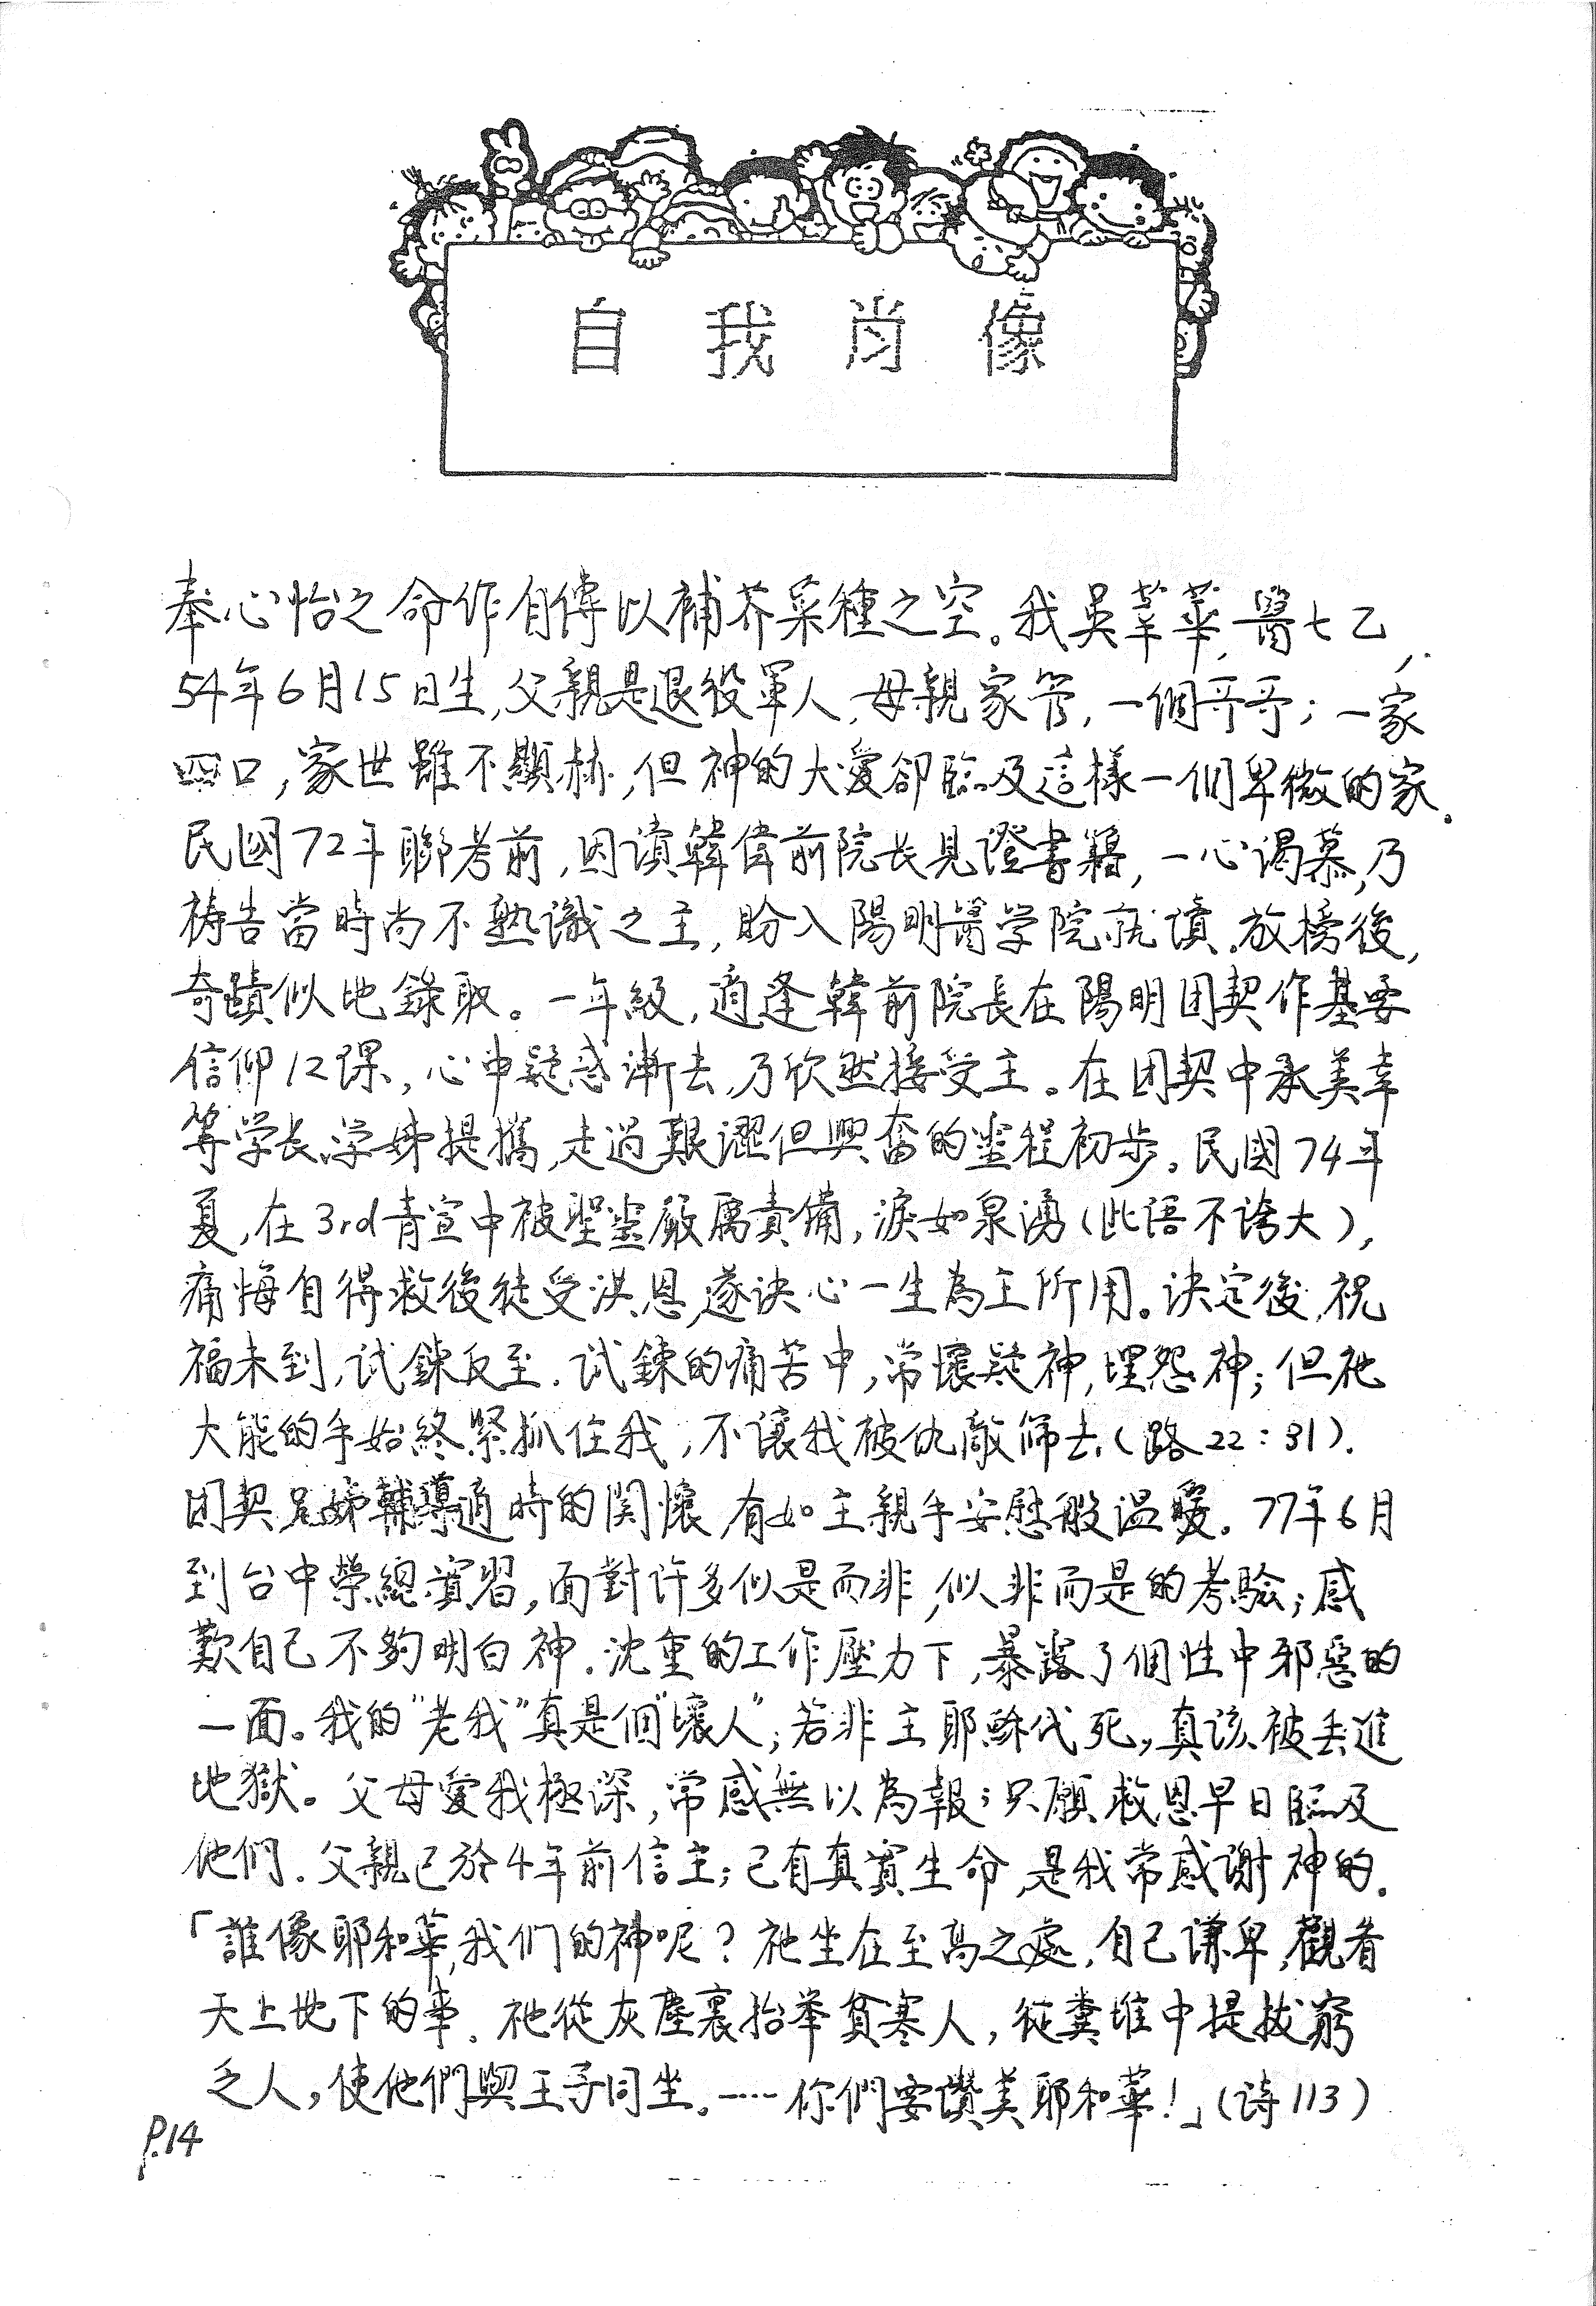 自我肖像
奉心怡之命作自傳以補芥菜種之空。我吳莘華,醫七乙,
54年6月15日生,父親是退役軍人,母親家管,一個哥哥;一家
四口,家世雖不顯赫,但神的大愛卻臨及這樣一個卑微的家.
民國72年聯考前,因讀韓偉前院長見證書籍,一心渴慕,乃
禱告當時尚不熟識之主,盼入陽明醫学院就讀.放榜後,
奇蹟似地錄取。一年級,適逢韓前院長在陽明团契作基要
信仰12課,心中疑惑漸去,乃欣然接受主。在团契中承美幸
等学长、学姊提攜,走過艱澀但興奮的靈程初步。民國74年
夏,在3rd青宣中被聖靈嚴厲責備,淚如泉湧(此语不誇大),
痛悔自得救後徒受洪恩,遂決心一生為主所用。決定後,祝
福未到,试鍊反至.试鍊的痛苦中,常懷疑神,埋怨神;但祂
大能的手始終緊抓住我,不讓我被仇敵篩去.(路22:31).
团契兄姊輔導適時的関懷,有如主親手安慰般温暖。77年6月
到台中榮總實習,面對许多似是而非,似非而是的考驗;感
歎自己不夠明白神.沈重的工作壓力下,暴露了個性中邪惡的
一面。我的"老我"真是個"壞人";若非主耶穌代死,真该被丢進
地獄。父母愛我極深,常感無以為報;只願救恩早日臨及
他們.父親已於4年前信主;已有真實生命,是我常感謝神的.
「誰像耶和華,我们的神呢?祂坐在至高之處,自己谦卑,觀看
天上地下的事.祂從灰塵裏抬举貧寒人,從糞堆中提拔窮
乏人,使他們與王子同坐.……你們要讚美耶和華!」(诗113)
P.14